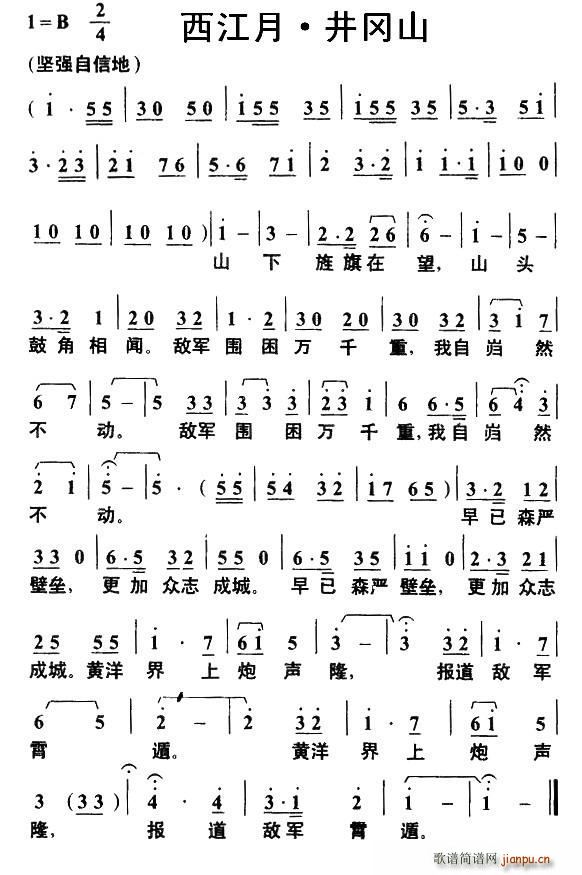 西江月·井冈山
1=B 2/4
(坚强自信地)
( i · 55 | 30 50 | i55 35 | i55 35 | 5·3 5i |
3·23 | 2i 76 | 5·6 7i | 2 3·2 | i i·i | i0 0 |
10 10 | 10 10 ) | i － | 3 － | 2·2 26 | 6 － | i － | 5 － |
山 下 旌旗在 望, 山 头
3·2 1 | 20 32 | 1·2 | 30 20 | 50 32 | 3 i 7 |
鼓角相闻。敌军围困万千重,我自岿然
6 7 | 5 － | 5 33 | 3 3 3 | 23 i | 6 6·5 | 6 4 3 |
不动。 敌军围困万千重,我自岿然
2 i | 5 － | 5 · ( 55 | 54 32 | i7 65 ) | 3·2 12 |
不 动。 早已森严
33 0 | 6·5 32 | 55 0 | 6·5 35 | ii 0 | 2·3 21 |
壁垒, 更加众志成城。早已森严壁垒,更加众志
25 55 | i · 7 | 6i 5 | 3 － | 3 32 | i · 7 |
成城。黄洋界上炮声隆, 报道敌军
6 5 | 2 － | 2 32 | i · 7 | 6i 5 |
霄 遁。 黄洋界上炮声
3 (33) | 4 · 4 | 3·i 2 | i － | i － ‖
隆, 报道敌军霄遁。
歌谱简谱网
jianpu.cn